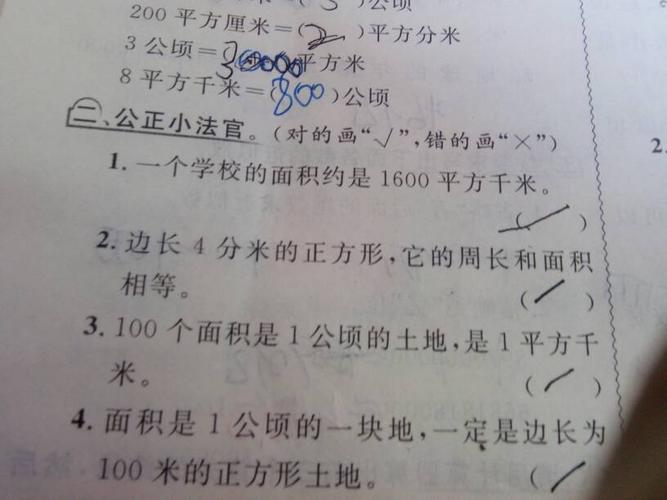 (3)公顷
200平方厘米=(2)平方分米
3公顷=(30000)平方米
8平方千米=(800)公顷
二、公正小法官。(对的画“√”,错的画“×”)
1. 一个学校的面积约是1600平方千米。
(✓)
2. 边长4分米的正方形,它的周长和面积
相等。 (✓)
3. 100个面积是1公顷的土地,是1平方千
米。 (✓)
4. 面积是1公顷的一块地,一定是边长为
100米的正方形土地。 (✓
2.